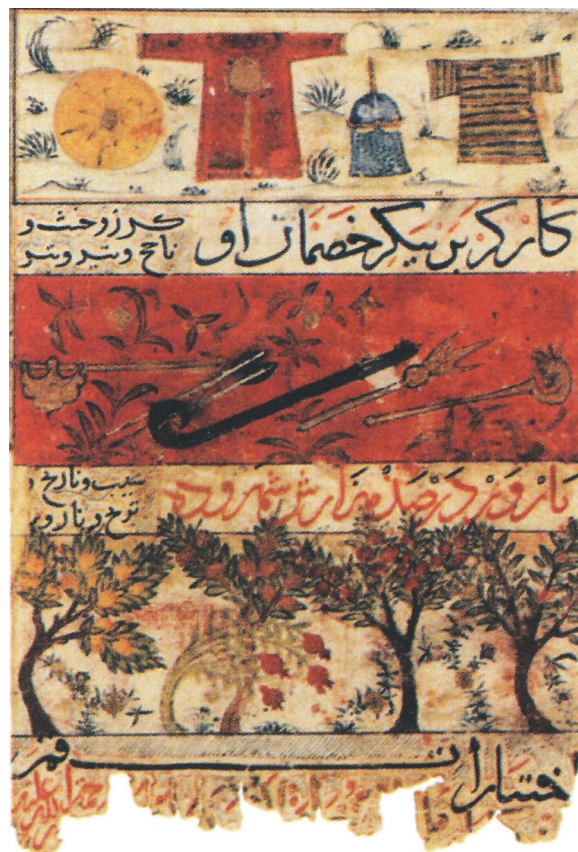 کارکر بر بیکر خصمان او
کرز و خشت و
ناجخ و تیر و تبر
بارور در صد هزارش شهر و ده
سیب و نارنج و
ترنج و نار و به
اختیارات قمر